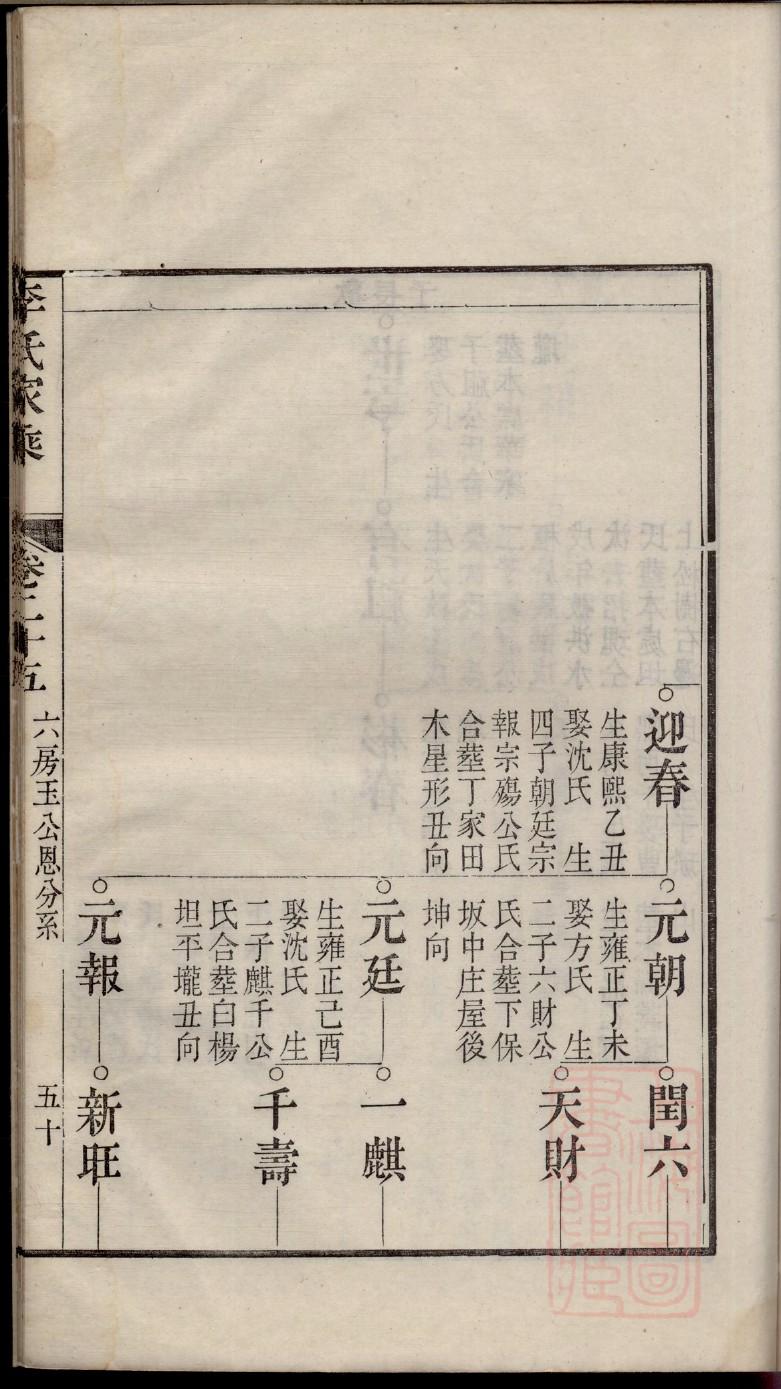 迎春
生康熙乙丑
娶沈氏　生
四子朝廷宗
報宗殤公氏
合塟丁家田
木星形丑向
元朝
生雍正丁未
娶方氏　生
二子六財公
氏合塟下保
坂中庄屋後
坤向
閏六
天財
元廷
生雍正己酉
娶沈氏　生
二子麒千公
氏合塟白楊
坦平壠丑向
一麒
千壽
元報
新旺
李氏家乘
卷二十五
六房玉公恩分系
五十